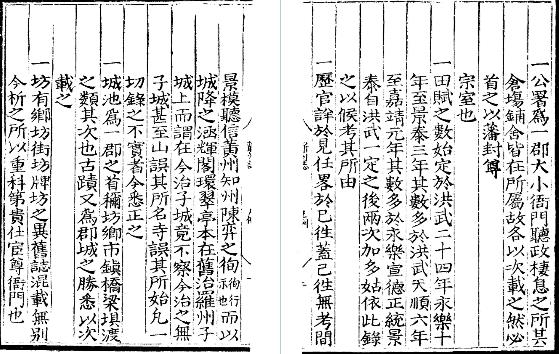 一公署爲一郡大小衙門聽政棲息之所其
倉塲鋪舍皆在所屬故各以次載之然必
首之以藩封尊
宗室也
一田賦之數始定於洪武二十四年永樂十
年至景泰三年其數多於洪武天順六年
至嘉靖元年其數多於永樂宣德正統景
泰自洪武一定之後兩次加多姑依此錄
之以俟考其所由
一歷官詳於見任畧於已徃蓋已徃無考間
景模聽信黃州知州陳弈之徇徇行示也而以
城降之涵輝閣環翠亭本在舊治羅州子
城上而謂在今治子城竟不察今治之無
子城甚至山誤其所名寺誤其所始凢一
切錄之不實者今悉正之
一城池爲一郡之首稱坊鄉市鎮橋梁堤渡
之類其次也古蹟又爲郡城之勝悉以次
載之
一坊有鄉坊街坊牌坊之異舊誌混載無别
今析之所以重科第貴仕宦尊衙門也